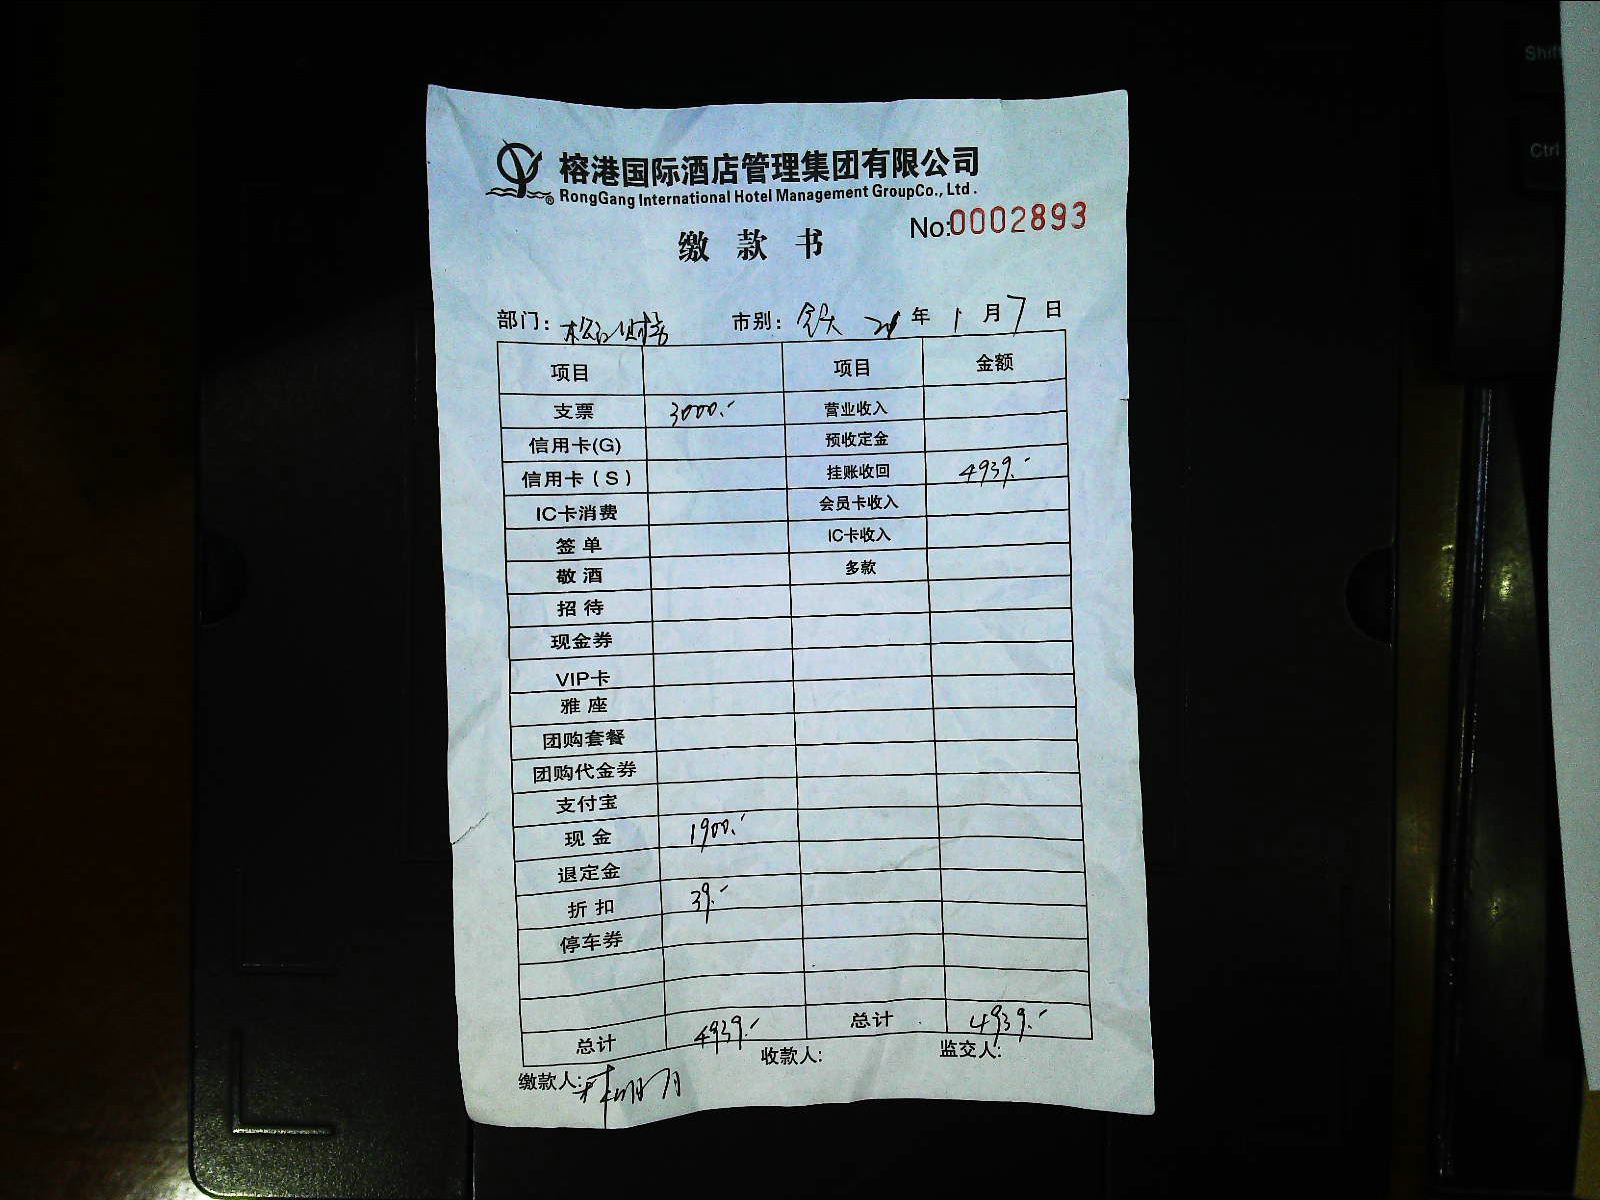 榕港国际酒店管理集团有限公司
® RongGang International Hotel Management GroupCo., Ltd.
No:0002893
缴款书
部门: 市别: 年 1 月 7 日
项目 项目 金额
支票 3000.- 营业收入
信用卡(G) 预收定金
信用卡(S) 挂账收回 4939.-
IC卡消费 会员卡收入
签单 IC卡收入
敬酒 多款
招待
现金券
VIP卡
雅座
团购套餐
团购代金券
支付宝
现金 1900.-
退定金
折扣 39.-
停车券
总计 4939.- 总计 4939.-
缴款人: 收款人: 监交人:
Shift
Ctrl